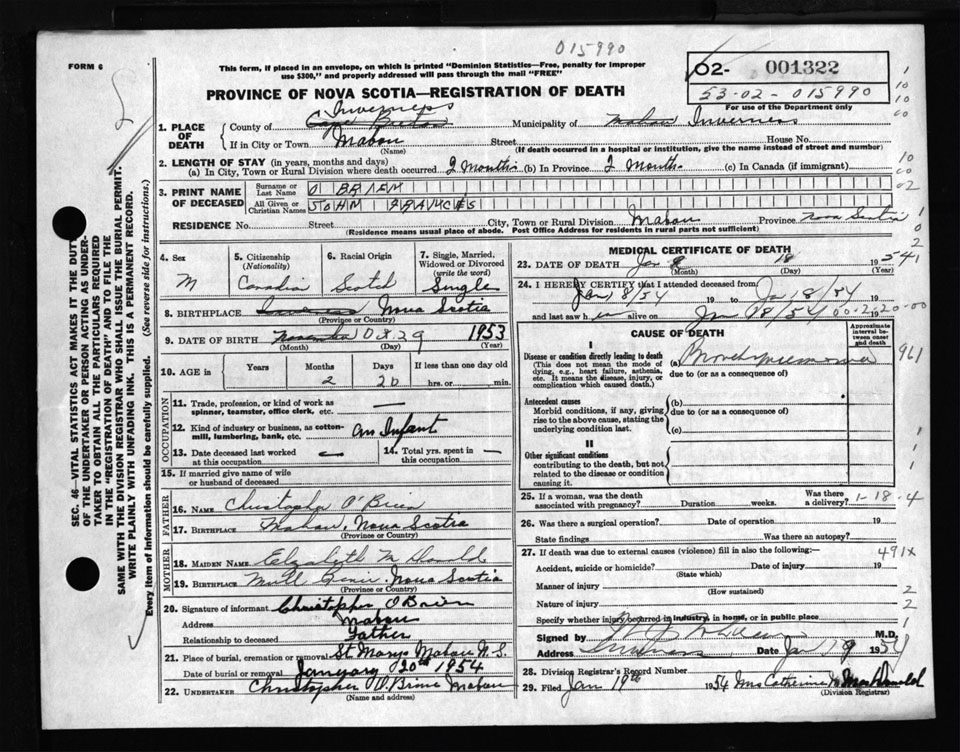 015990
FORM 6
This form, if placed in an envelope, on which is printed "Dominion Statistics—Free, penalty for improper use $300," and properly addressed will pass through the mail "FREE"
02- 001322
53-02-015990
For use of the Department only
PROVINCE OF NOVA SCOTIA—REGISTRATION OF DEATH
1. PLACE OF DEATH
County of Inverness Cape Breton Municipality of Mabou Inverness
If in City or Town Mabou (Name) Street House No.
(If death occurred in a hospital or institution, give the name instead of street and number)
2. LENGTH OF STAY (in years, months and days)
(a) In City, Town or Rural Division where death occurred 2 months (b) In Province 2 months (c) In Canada (if immigrant)
3. PRINT NAME OF DECEASED
Surname or Last Name O BRIEN
All Given or Christian Names JOHN FRANCIS
RESIDENCE No. Street City, Town or Rural Division Mabou Province Nova Scotia
(Residence means usual place of abode. Post Office Address for residents in rural parts not sufficient)
4. Sex M
5. Citizenship (Nationality) Canadian
6. Racial Origin Scotch
7. Single, Married, Widowed or Divorced (write the word) Single
8. BIRTHPLACE Inverness Nova Scotia
(Province or Country)
9. DATE OF BIRTH November Oct 29 1953
(Month) (Day) (Year)
10. AGE in Years Months 2 Days 20 If less than one day old hrs. or min.
OCCUPATION
11. Trade, profession, or kind of work as spinner, teamster, office clerk, etc. —
12. Kind of industry or business, as cotton-mill, lumbering, bank, etc. an Infant
13. Date deceased last worked at this occupation —
14. Total yrs. spent in this occupation —
15. If married give name of wife or husband of deceased
FATHER
16. NAME Christopher O'Brien
17. BIRTHPLACE Mabou, Nova Scotia
(Province or Country)
MOTHER
18. MAIDEN NAME
19. BIRTHPLACE Nova Scotia
(Province or Country)
20. Signature of informant Christopher O'Brien
Address Mabou
Relationship to deceased Father
21. Place of burial, cremation or removal St Marys Mabou N.S.
Date of burial or removal January 20th 1954
22. UNDERTAKER Christopher O'Brine Mabou
(Name and address)
MEDICAL CERTIFICATE OF DEATH
23. DATE OF DEATH Jan 18 1954
(Month) (Day) (Year)
24. I HEREBY CERTIFY that I attended deceased from
Jan 8/54 19 to Jan 18/54
and last saw h alive on Jan 18/54
CAUSE OF DEATH
Approximate interval between onset and death
I
Disease or condition directly leading to death
(This does not mean the mode of dying, e.g., heart failure, asthenia, etc. It means the disease, injury, or complication which caused death.)
(a) Bronchopneumonia
due to (or as a consequence of)
Antecedent causes
Morbid conditions, if any, giving rise to the above cause, stating the underlying condition last.
(b)
due to (or as a consequence of)
(c)
II
Other significant conditions
contributing to the death, but not related to the disease or condition causing it
25. If a woman, was the death associated with pregnancy? Duration weeks. Was there a delivery?
1-18-4
26. Was there a surgical operation? Date of operation 19
State findings Was there an autopsy?
27. If death was due to external causes (violence) fill in also the following:—
491X
Accident, suicide or homicide? Date of injury 19
(State which)
Manner of injury
(How sustained)
Nature of injury
Specify whether injury occurred in industry, in home, or in public place
Signed by M.D.
Address Inverness Date Jan 19 1954
28. Division Registrar's Record Number
29. Filed Jan 19th 1954 Mrs Catherine MacDonald
(Division Registrar)
SEC. 46—VITAL STATISTICS ACT MAKES IT THE DUTY OF THE UNDERTAKER OR PERSON ACTING AS UNDERTAKER TO OBTAIN ALL THE PARTICULARS REQUIRED IN THE "REGISTRATION OF DEATH" AND TO FILE THE SAME WITH THE DIVISION REGISTRAR WHO SHALL ISSUE THE BURIAL PERMIT.
WRITE PLAINLY WITH UNFADING INK. THIS IS A PERMANENT RECORD.
Every item of information should be carefully supplied. (See reverse side for instructions.)